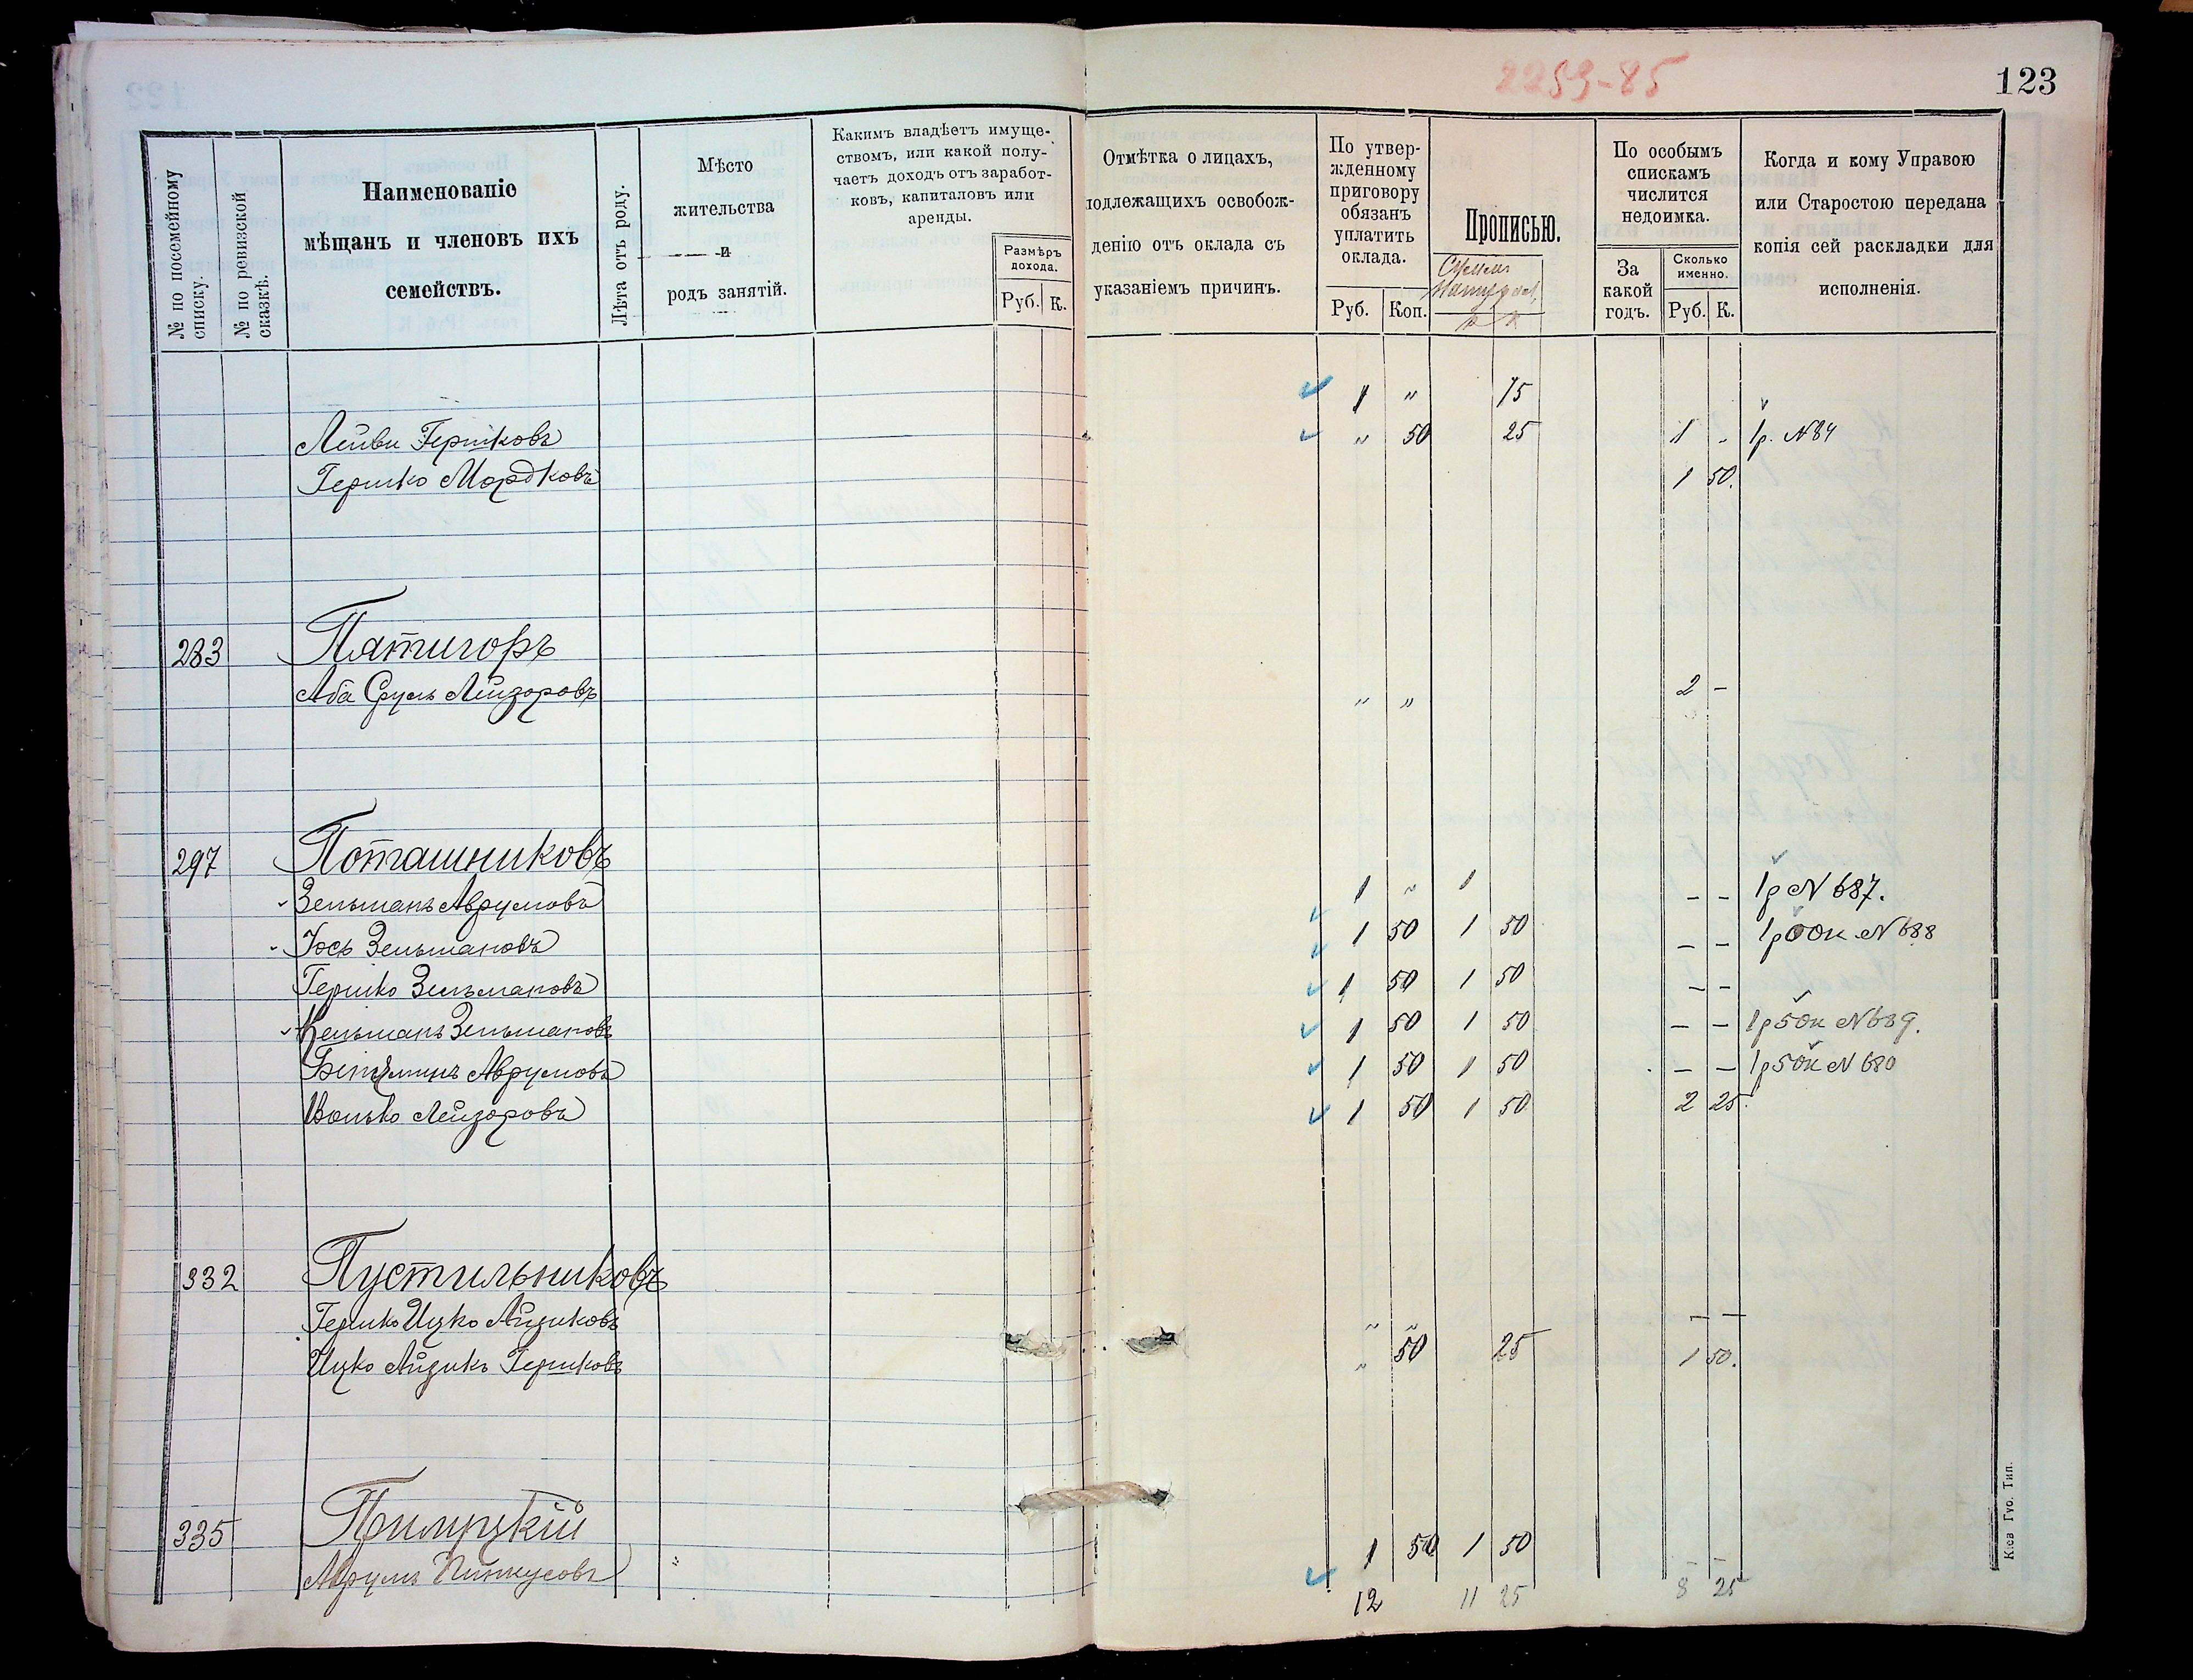 2259-85
123
№ по посемейному списку.
№ по ревизской сказкѣ.
Наименованіе
мѣщанъ и членовъ ихъ
семействъ.
Лѣта отъ роду.
Мѣсто
жительства
и
родъ занятій.
Какимъ владѣетъ имуще-
ствомъ, или какой полу-
чаетъ доходъ отъ заработ-
ковъ, капиталовъ или
аренды.
Размѣръ
дохода.
Руб. К.
Отмѣтка о лицахъ,
подлежащихъ освобож-
денію отъ оклада съ
указаніемъ причинъ.
По утвер-
жденному
приговору
обязанъ
уплатить
оклада.
Руб. Коп.
Прописью.
По особымъ
спискамъ
числится
недоимка.
За
какой
годъ.
Сколько
именно.
Руб. К.
Когда и кому Управою
или Старостою передана
копія сей раскладки для
исполненія.
1 " 75
Лейви Гершковъ " 50 25 1 - 1р. N84
Гершко Мордковъ 1 50.
283 Пятигоръ
Аба Сруль Лейзоровъ " " 2 -
297 Поташниковъ
Зельманъ Аврумовъ 1 " 1 - - 1р N 687.
Іось Зельмановъ 1 50 1 50 - - N 688
Гершко Зельмановъ 1 50 1 50 - -
Кельманъ Зельмановъ 1 50 1 50 - - 1р50к N689.
Беніяминъ Аврумовъ 1 50 1 50 - - 1р50к N 680
Волько Лейзоровъ 1 50 1 50 2 25.
332 Пустильниковъ
Гершко Ицко Айзиковъ " " - -
Ицко Айзикъ Гершковъ " 50 25 1 50.
335
Аврумъ Пинкусовъ " 1 50 1 50 - -
12 11 25 8 25
Кіев. Губ. Тип.